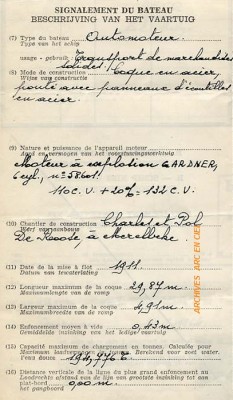 SIGNALEMENT DU BATEAU
BESCHRIJVING VAN HET VAARTUIG
(7) Type du bateau Automoteur.
Type van het schip
usage - gebruik Transport de marchandises
(8) Mode de construction Coque en acier,
Wijze van constructie
ponté avec panneaux d'écoutilles
en acier.
(9) Nature et puissance de l'appareil moteur
Aard en vermogen van het voortstuwingswerktuig
Moteur à explosion GARDNER,
cyl, n° 58601.
110 C.V. + 20% = 132 C.V.
(10) Chantier de construction Charles et Pol
De Hoode, à Merelbeke.
(11) Date de la mise à flot 1911.
Datum van tewaterlating
(12) Longueur maximum de la coque 29,87 m
Maximumlengte van de romp
(13) Largeur maximum de la coque 4,91 m
Maximumbreedte van de romp
(14) Enfoncement moyen à vide 0,43 m
Gemiddelde inzinking van het ledige vaartuig
(15) Capacité maximum de chargement en tonnes. Calculée pour
Maximum laadvermogen in tonnen. Berekend voor zoet water.
l'eau douce 194,776 T.
(16) Distance verticale de la ligne du plus grand enfoncement au
Loodrechte afstand van de lijn van grootste inzinking tot aan
plat-bord 0,00 m
het gangboord
ARCHIVES ARC EN CIEL